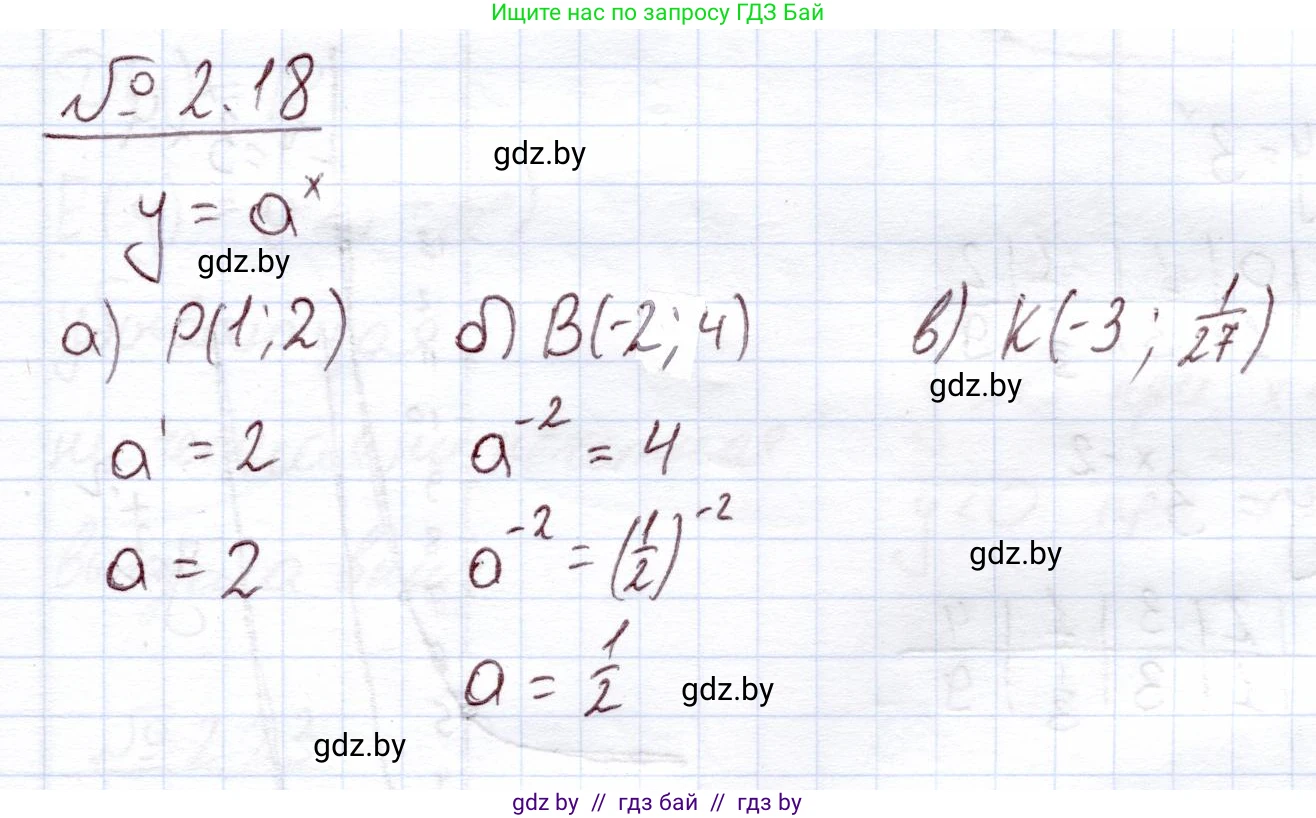 Ищите нас по запросу ГДЗ Бай
№ 2.18
gdz.by
y = a^x
gdz.by
а) P(1; 2) б) B(-2; 4) в) K(-3; 1/27)
gdz.by
a^1 = 2 a^-2 = 4
a = 2 a^-2 = (1/2)^-2
gdz.by
a = 1/2
gdz.by
gdz.by
gdz by // гдз бай // гдз by